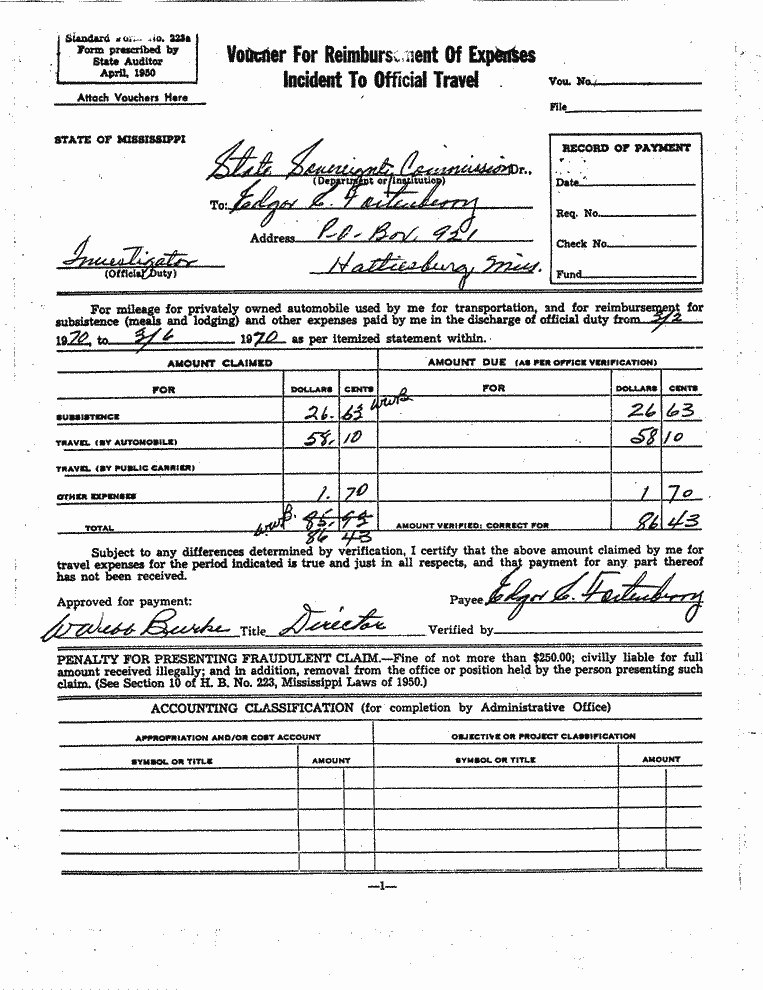 Standard Form No. 223a
Form prescribed by
State Auditor
April, 1950
Attach Vouchers Here
Voucher For Reimbursement Of Expenses
Incident To Official Travel
Vou. No.
File
STATE OF MISSISSIPPI
State Sovereignty Commission Dr.,
(Department or Institution)
To: Edgar C. Fortenberry
Address P.O. Box 921
Hattiesburg, Miss.
Investigator
(Official Duty)
RECORD OF PAYMENT
Date
Req. No.
Check No.
Fund
For mileage for privately owned automobile used by me for transportation, and for reimbursement for
subsistence (meals and lodging) and other expenses paid by me in the discharge of official duty from 3/2
1970, to 3/6 1970 as per itemized statement within.
AMOUNT CLAIMED AMOUNT DUE (AS PER OFFICE VERIFICATION)
FOR DOLLARS CENTS FOR DOLLARS CENTS
SUBSISTENCE 26. 63 WWB 26 63
TRAVEL (BY AUTOMOBILE) 58. 10 58 10
TRAVEL (BY PUBLIC CARRIER)
OTHER EXPENSES 1. 70 1 70
TOTAL WWB. 85. 93 AMOUNT VERIFIED; CORRECT FOR 86 43
86 43
Subject to any differences determined by verification, I certify that the above amount claimed by me for
travel expenses for the period indicated is true and just in all respects, and that payment for any part thereof
has not been received.
Approved for payment: Payee Edgar C. Fortenberry
W Webb Burke Title Director Verified by
PENALTY FOR PRESENTING FRAUDULENT CLAIM.—Fine of not more than $250.00; civilly liable for full
amount received illegally; and in addition, removal from the office or position held by the person presenting such
claim. (See Section 10 of H. B. No. 223, Mississippi Laws of 1950.)
ACCOUNTING CLASSIFICATION (for completion by Administrative Office)
APPROPRIATION AND/OR COST ACCOUNT OBJECTIVE OR PROJECT CLASSIFICATION
SYMBOL OR TITLE AMOUNT SYMBOL OR TITLE AMOUNT
—1—